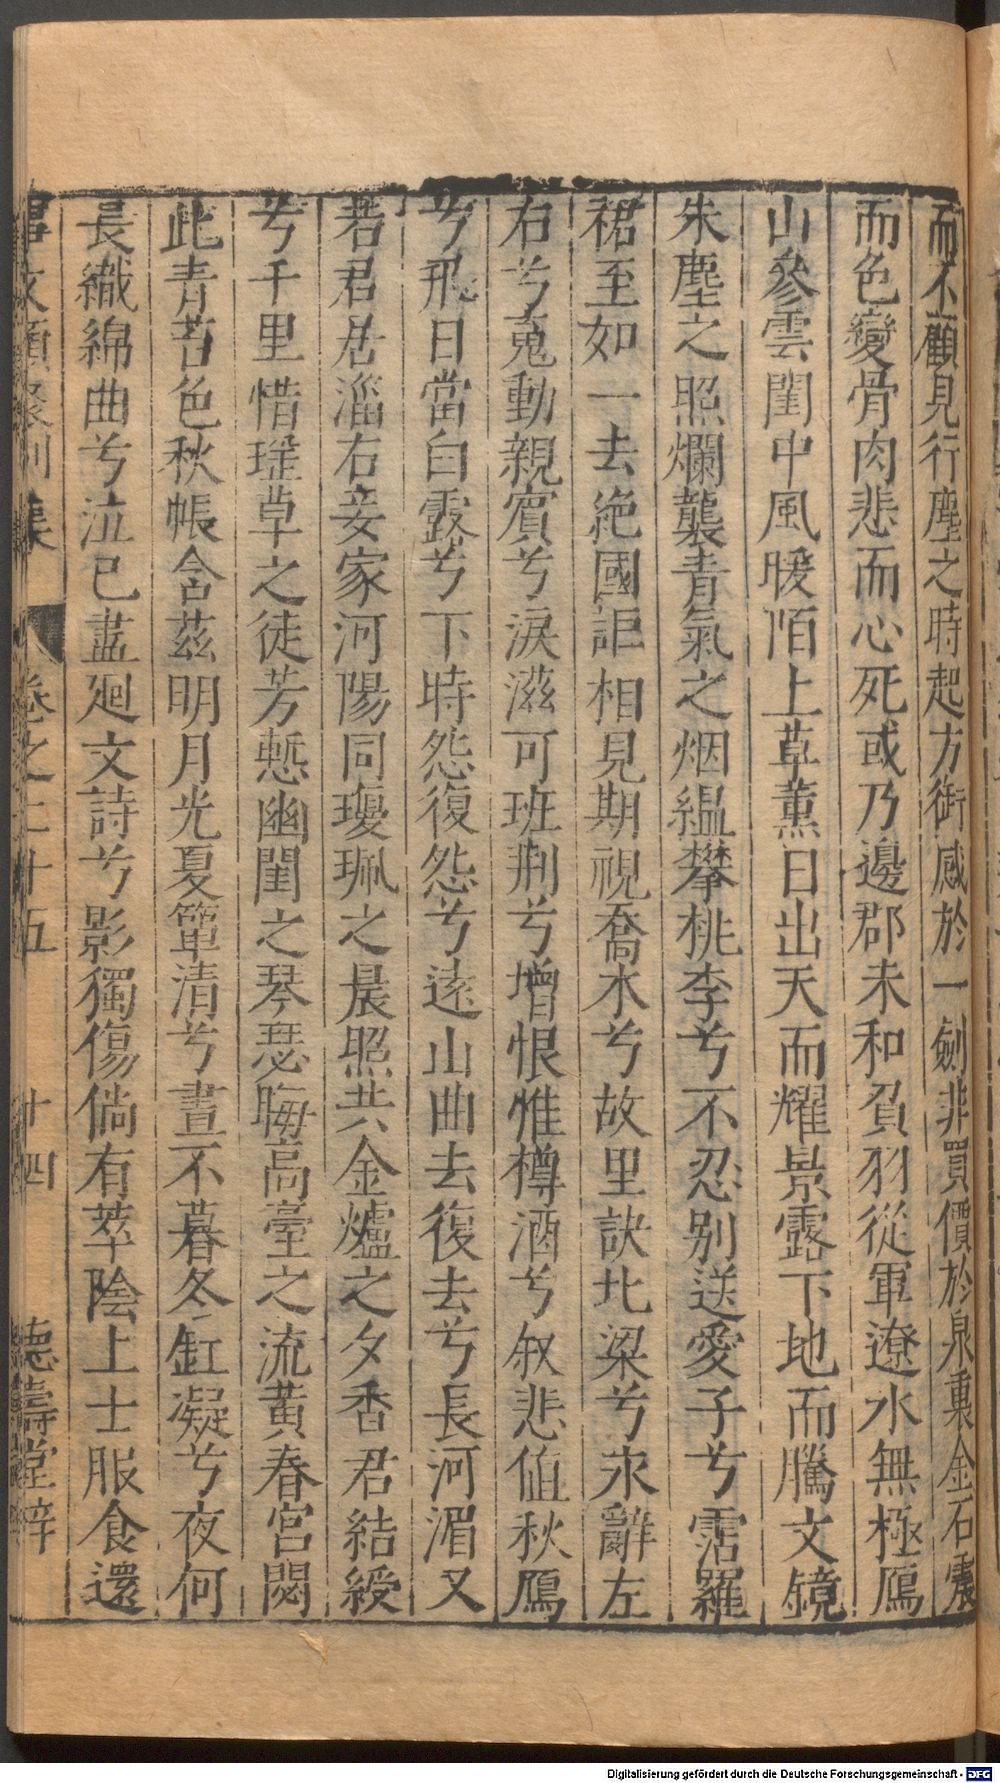 而不顧見行塵之時起方銜感於一劍非買價於泉裏金石震
而色變骨肉悲而心死或乃邊郡未和負羽從軍遼水無極鴈
山參雲閨中風暖陌上草薰日出天而耀景露下地而騰文鏡
朱塵之照爛襲青氣之烟縕攀桃李兮不忍別送愛子兮霑羅
裙至如一去絶國詎相見期視喬木兮故里訣北梁兮永辭左
右兮䰟動親賓兮淚滋可班荆兮增恨惟樽酒兮叙悲值秋鴈
兮飛日當白露兮下時怨復怨兮遠山曲去復去兮長河湄又
若君居淄右妾家河陽同瓊珮之晨照共金爐之夕香君結綬
兮千里惜瑶草之徒芳慙幽閨之琴瑟晦高臺之流黃春宮閟
此青苔色秋帳含茲明月光夏簟清兮晝不暮冬釭凝兮夜何
長織綿曲兮泣已盡廻文詩兮影獨傷倘有華陰上士服食還
事文類聚別集 卷之二十五 十四 德壽堂梓
Digitalisierung gefördert durch die Deutsche Forschungsgemeinschaft - DFG